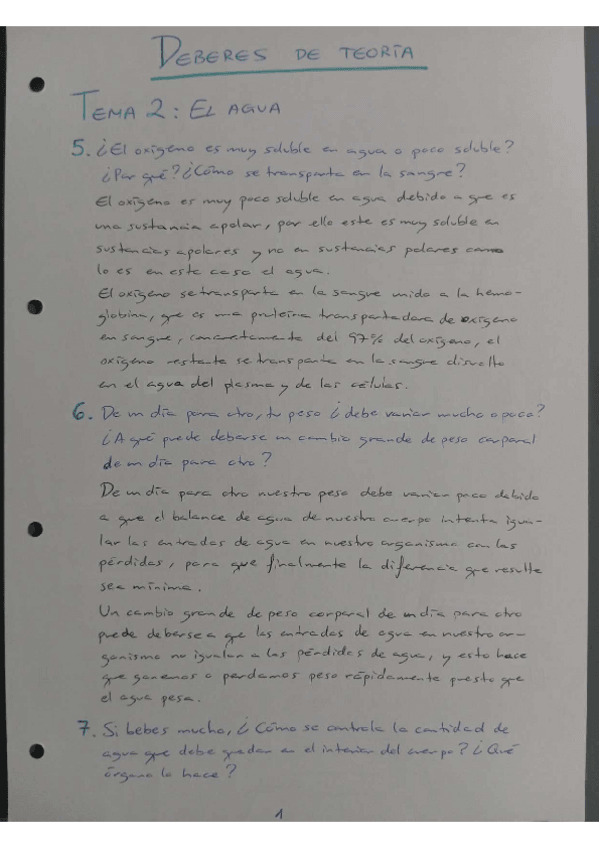 DEBERES DE TEORÍA
TEMA 2: EL AGUA
5. ¿El oxígeno es muy soluble en agua o poco soluble?
¿Por qué? ¿Cómo se transporta en la sangre?
El oxígeno es muy poco soluble en agua debido a que es
una sustancia apolar, por ello este es muy soluble en
sustancias apolares y no en sustancias polares como
lo es en este caso el agua.
El oxígeno se transporta en la sangre unido a la hemo-
globina, que es una proteína transportadora de oxígeno
en sangre, concretamente del 97% del oxígeno, el
oxígeno restante se transporta en la sangre disuelto
en el agua del plasma y de las células.
6. De un día para otro, tu peso ¿debe variar mucho o poco?
¿A qué puede deberse un cambio grande de peso corporal
de un día para otro?
De un día para otro nuestro peso debe variar poco debido
a que el balance de agua de nuestro cuerpo intenta igua-
lar las entradas de agua en nuestro organismo con las
pérdidas, para que finalmente la diferencia que resulte
sea mínima.
Un cambio grande de peso corporal de un día para otro
puede deberse a que las entradas de agua en nuestro or-
ganismo no igualan a las pérdidas de agua, y esto hace
que ganemos o perdamos peso rápidamente puesto que
el agua pesa.
7. Si bebes mucho, ¿Cómo se controla la cantidad de
agua que debe quedar en el interior del cuerpo? ¿Qué
órgano lo hace?
1